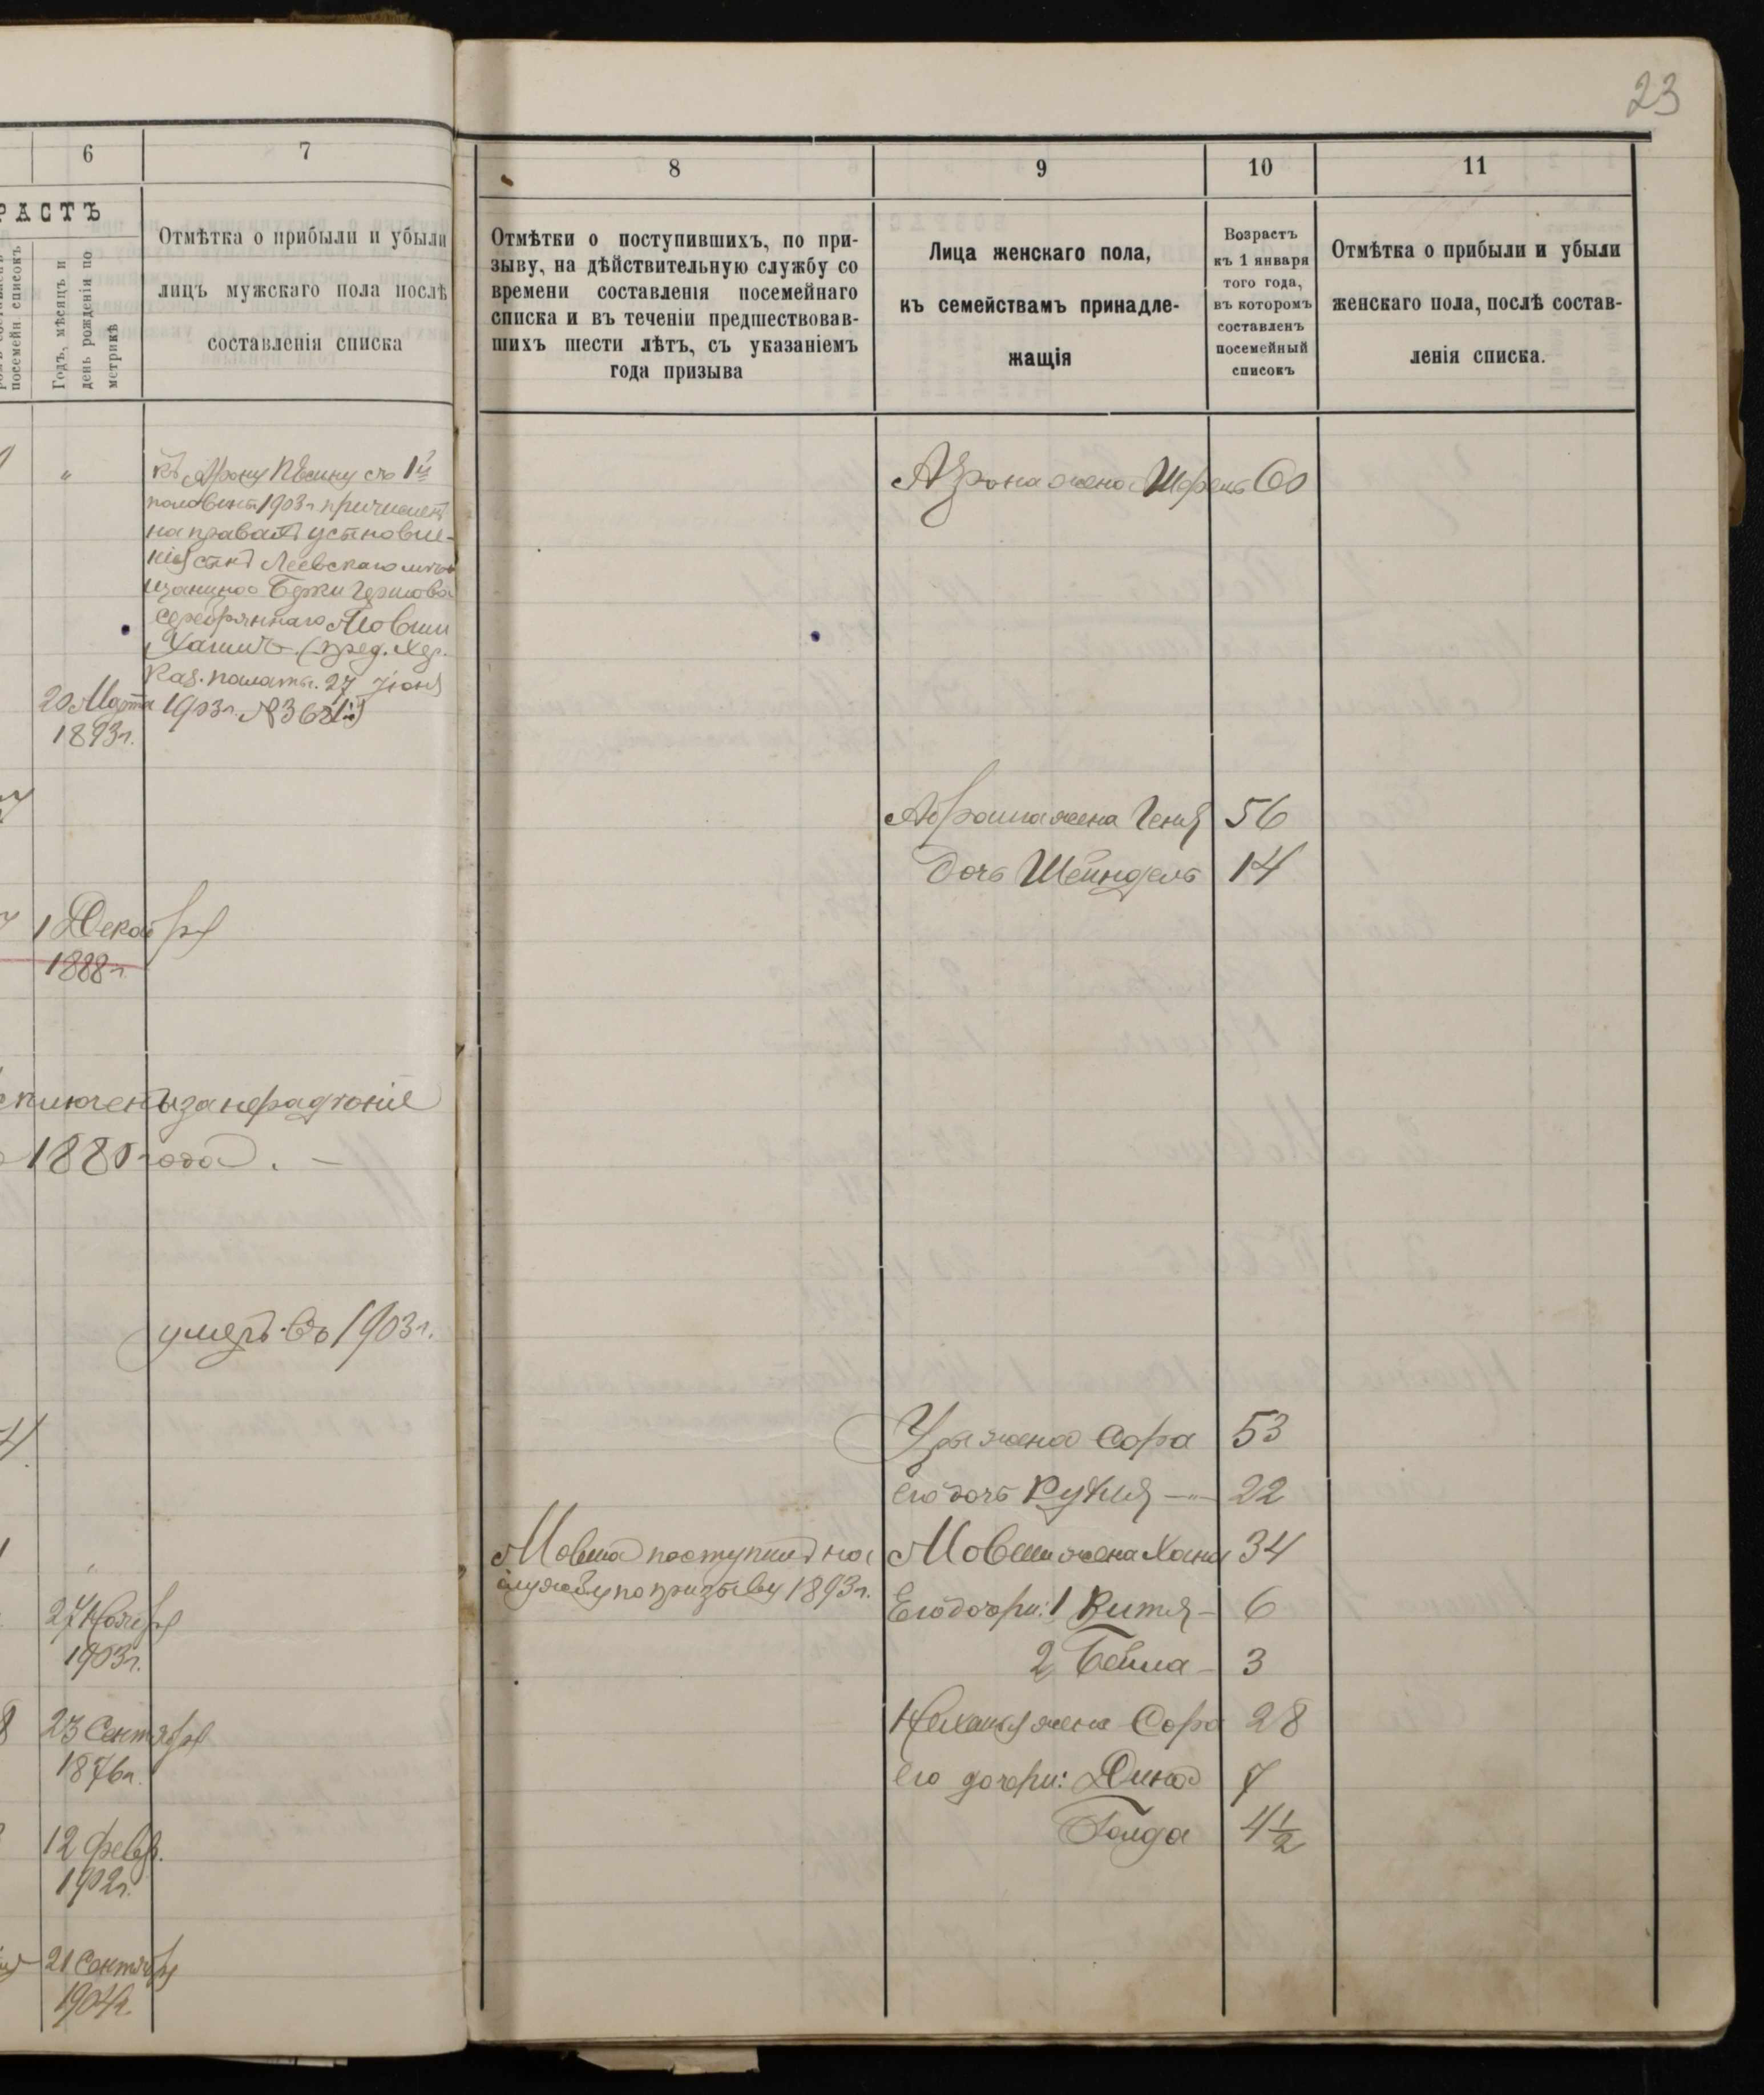 23
6
7
РАСТЪ
посемейн списокъ
Годъ, мѣсяцъ и
день рожденія по
метрикѣ
Отмѣтка о прибыли и убыли
лицъ мужскаго пола послѣ
составленія списка
8
9
10
11
Отмѣтки о поступившихъ, по при-
зыву, на дѣйствительную службу со
времени составленія посемейнаго
списка и въ теченіи предшествовав-
шихъ шести лѣтъ, съ указаніемъ
года призыва
Лица женскаго пола,
къ семействамъ принадле-
жащія
Возрастъ
къ 1 января
того года,
въ которомъ
составленъ
посемейный
списокъ
Отмѣтка о прибыли и убыли
женскаго пола, послѣ состав-
ленія списка.
"
къ Арону съ 1й
половины 1903 г. причисленъ
на правахъ усыновле-
нія сынъ
Берки
Серебряннаго Мовши
Хаимъ (пред. Хер.
Каз. палаты 27 Іюня
1903 г. №
20 Марта
1893 г.
1 Декабря
1888 г.
за нерадѣніе
1880 года. —
умеръ въ 1903 г.
27 Ноября
1903 г.
23 Сентября
1876 г.
12 февр.
1902 г.
21 Сентября
1904 г.
Мовша поступилъ на
службу по призыву 1893 г.
Арона жена 60
Абрама жена Геня 56
дочь Шейндель 14
жена Сора 53
его дочь — 22
Мовши жена Хана 34
Его дочери: 1 Китя — 6
2 Бейла — 3
жена Сора 28
Его дочери: Дина 7
Голда 4 1/2